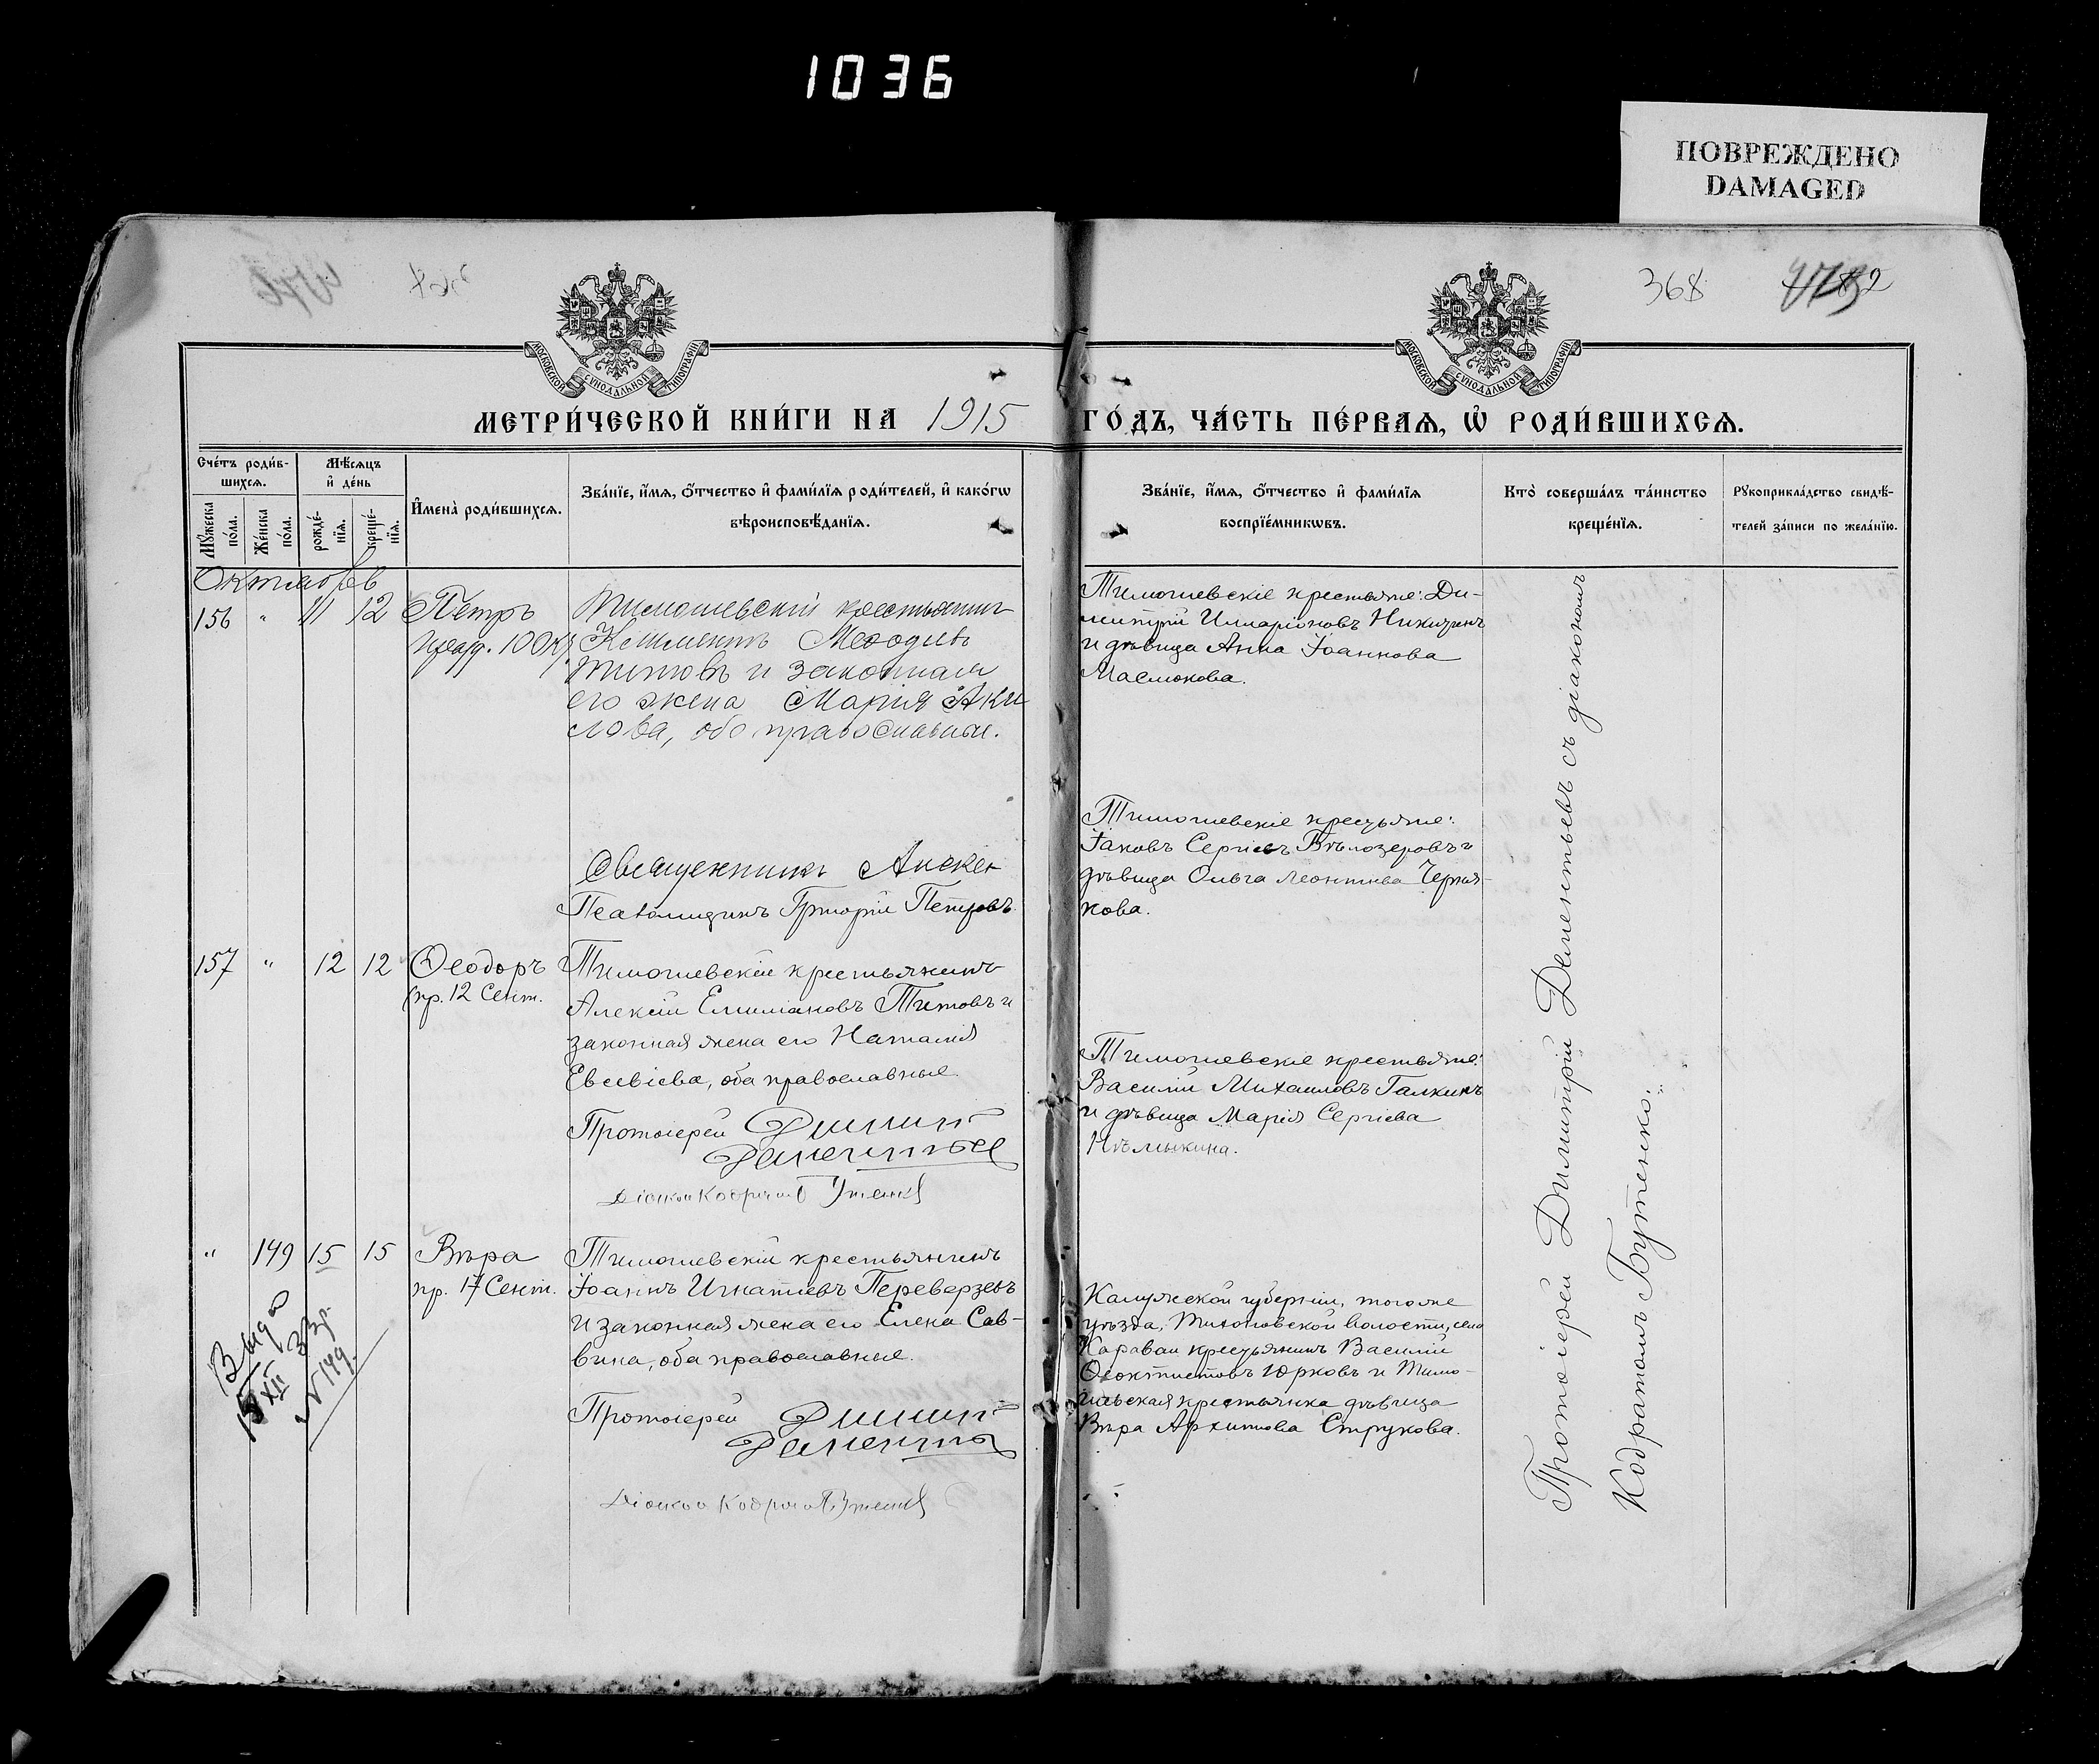 1036
ПОВРЕЖДЕНО
DAMAGED
368
МОСКОВСКОЙ СѴНОДАЛЬНОЙ ТИПОГРАФІИ
МОСКОВСКОЙ СѴНОДАЛЬНОЙ ТИПОГРАФІИ
МЕТРИ́ЧЕСКОЙ КНИ́ГИ НА 1915 ГО́ДЪ, ЧА́СТЬ ПЕ́РВАѦ, Ѡ҆ РОДИ́ВШИХСѦ.
Сче́тъ роди́в-
шихсѧ.
Мꙋ́жеска по́ла.
Же́нска по́ла.
Мѣ́сѧцъ
и҆ де́нь
рожде́-
нїѧ.
креще́-
нїѧ.
И҆мена̀ роди́вшихсѧ.
Зва́нїе, и҆́мѧ, ѻ҆́тчество и҆ фами́лїѧ роди́телей, и҆ како́гѡ
вѣроисповѣ́данїѧ.
Зва́нїе, и҆́мѧ, ѻ҆́тчество и҆ фами́лїѧ
воспрїе́мникѡвъ.
Кто̀ соверша́лъ та́инство
креще́нїѧ.
Рꙋкоприкла́дство свидѣ́-
телей за́писи по жела́нїю.
Октябрь
156 " 11 12 Петръ
Тимошевскій крестьянинъ
Климентъ Меѳодіевъ
Титовъ и законная
его жена Марія Аки
лова, оба православные.
Священникъ
Псаломщикъ Григорій Петровъ
Тимошевскіе крестьяне: Ди-
митрій Илларіоновъ Никитинъ
и дѣвица Анна Іоаннова
Маслюкова.
157 " 12 12 Ѳеодоръ
пр. 12 Сент.
Тимошевскій крестьянинъ
Алексій Емиліановъ Титовъ и
законная жена его Наталія
Евсевіева, оба православные.
Протоіерей Димитрій
Дементьев
Діаконъ Кодратъ Бутенко
Тимошевскіе крестьяне:
Іаковъ Сергіевъ Бѣлозеровъ и
дѣвица Ольга Леонтіева Черня-
кова.
" 149 15 15 Вѣра
пр. 17 Сент.
Тимошевскій крестьянинъ
Іоаннъ Игнатіевъ Переверзевъ
и законная жена его Елена Сав-
вина, оба православные.
Протоіерей Димитрій
Дементьев
Діаконъ Кодратъ Бутенко
Тимошевскіе крестьяне:
Василій Михаиловъ Галкинъ
и дѣвица Марія Сергіева
Нѣмыкина.
Калужской губерніи, тогоже
уѣзда, волости, села
Караваи крестьянинъ Василій
Ѳеоктистовъ Юрковъ и Тимо-
шевская крестьянка дѣвица
Вѣра Архипова Струкова.
Протоіерей Димитрій Дементьевъ съ діакономъ
Кодратомъ Бутенко.
XII
№ 149